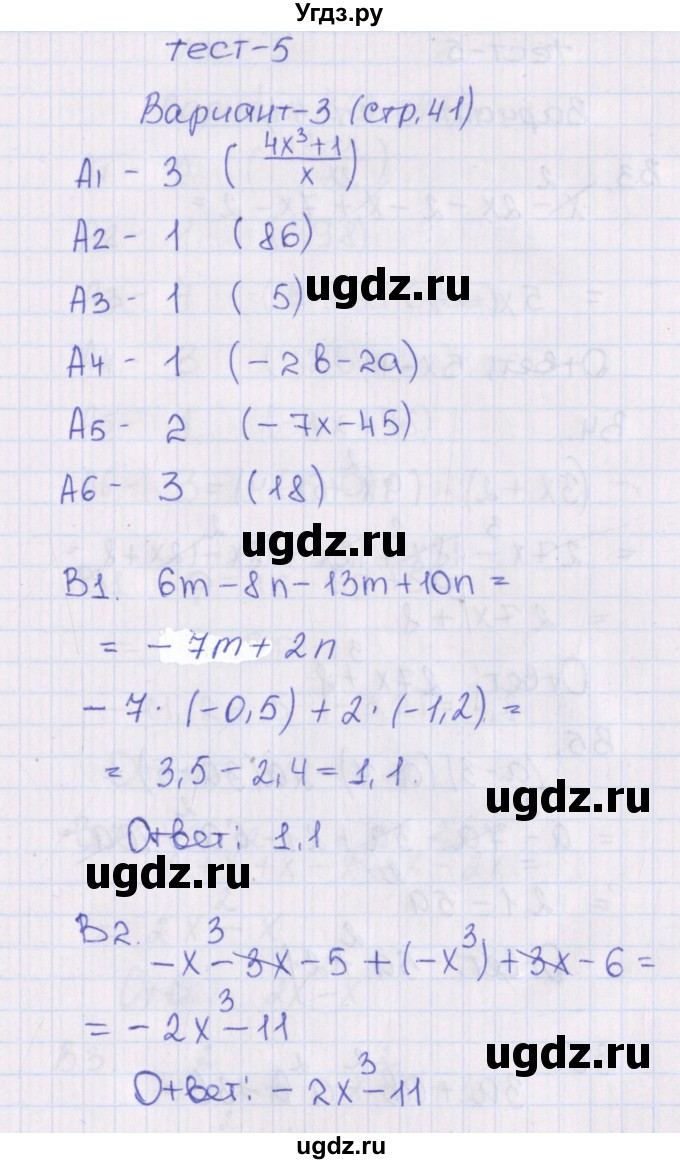 Угдз.ру
тест-5
Вариант-3 (стр.41)
А1 - 3 ( (4x³+1)/x )
А2 - 1 (86)
А3 - 1 ( 5)
ugdz.ru
А4 - 1 (-2в-2а)
А5 - 2 (-7x-45)
А6 - 3 (18)
ugdz.ru
В1. 6m-8n-13m+10n=
= -7m+2n
-7·(-0,5)+2·(-1,2)=
= 3,5-2,4=1,1.
ugdz.ru
Ответ: 1,1
ugdz.ru
В2.
-x³-3x-5+(-x³)+3x-6=
= -2x³-11
ugdz.ru
Ответ: -2x³-11
ugdz.ru